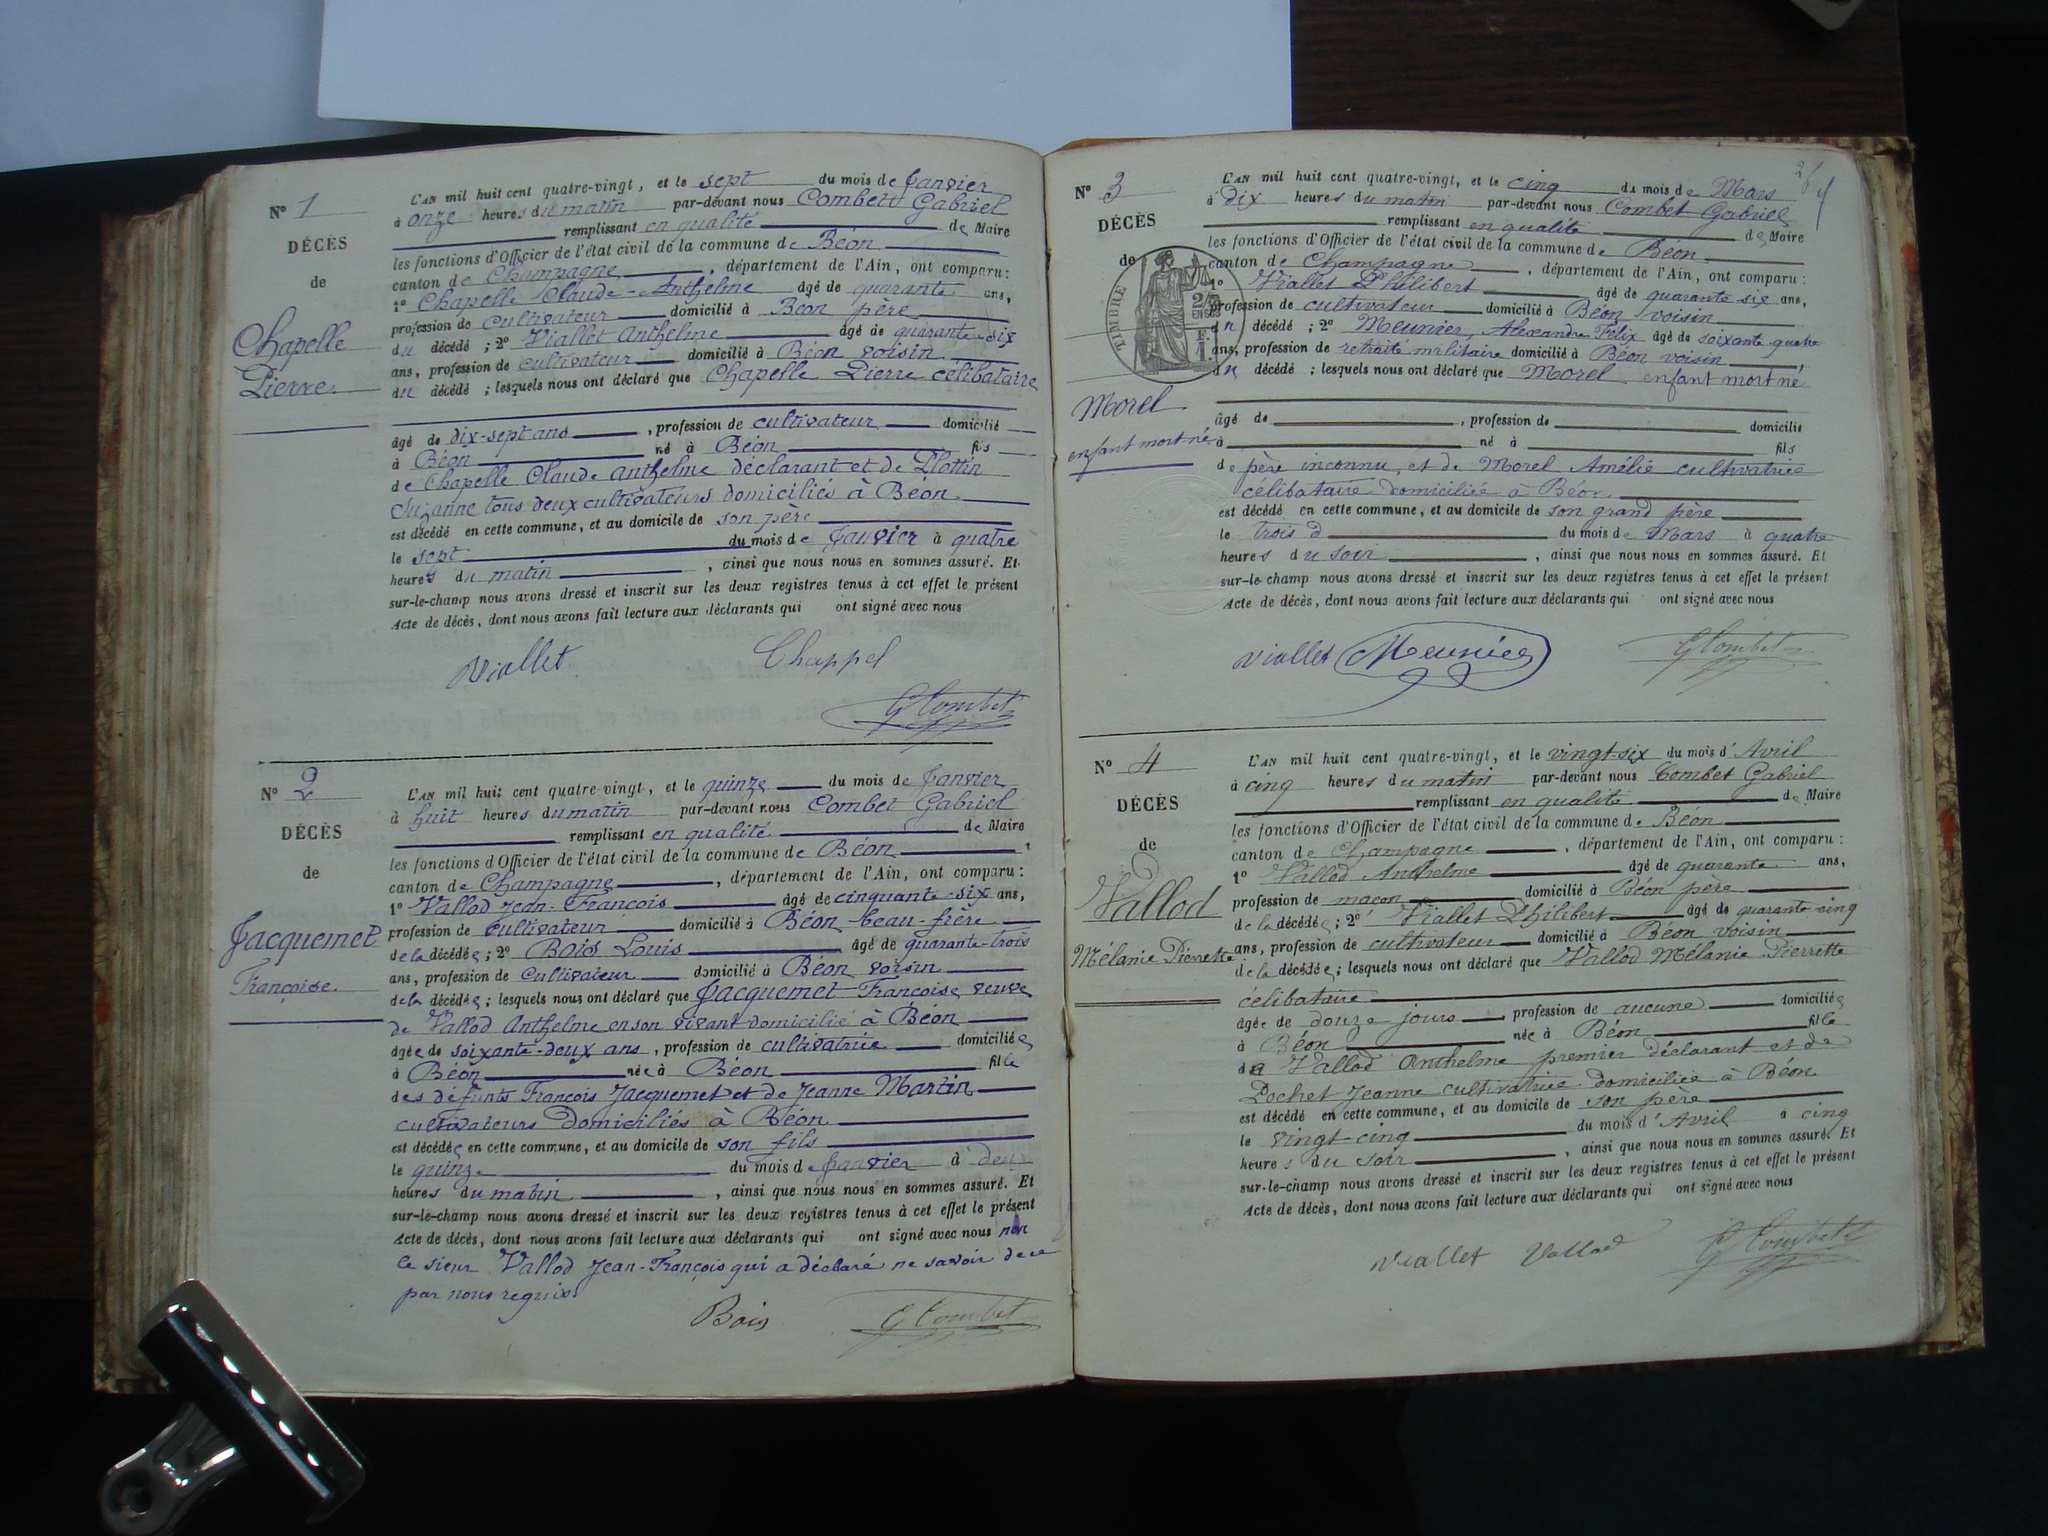 N° 1
DÉCÈS
de
Chapelle
Pierre.
L'AN mil huit cent quatre-vingt, et le sept du mois de Janvier
à onze heures du matin par-devant nous Combet Gabriel
remplissant en qualité de Maire
les fonctions d'Officier de l'état civil de la commune de Béon
canton de Champagne, département de l'Ain, ont comparu:
1° Chapelle Claude-Anthelme âgé de quarante ans,
profession de cultivateur domicilié à Béon père
du décédé ; 2° Viallet Anthelme âgé de quarante-six
ans, profession de cultivateur domicilié à Béon voisin
du décédé ; lesquels nous ont déclaré que Chapelle Pierre célibataire
âgé de dix-sept ans, profession de cultivateur domicilié
à Béon né à Béon fils
de Chapelle Claude Anthelme déclarant et de Plottin
Suzanne tous deux cultivateurs domiciliés à Béon
est décédé en cette commune, et au domicile de son père
le sept du mois de Janvier à quatre
heures du matin, ainsi que nous nous en sommes assuré. Et
sur-le-champ nous avons dressé et inscrit sur les deux registres tenus à cet effet le présent
Acte de décès, dont nous avons fait lecture aux déclarants qui ont signé avec nous
Viallet Chappel
G Combet
N° 2
DÉCÈS
de
Jacquemet
Françoise.
L'AN mil huit cent quatre-vingt, et le quinze du mois de Janvier
à huit heures du matin par-devant nous Combet Gabriel
remplissant en qualité de Maire
les fonctions d'Officier de l'état civil de la commune de Béon,
canton de Champagne, département de l'Ain, ont comparu:
1° Vallod Jean-François âgé de cinquante-six ans,
profession de cultivateur domicilié à Béon beau-frère
de la décédée ; 2° Bois Louis âgé de quarante-trois
ans, profession de cultivateur domicilié à Béon voisin
de la décédée ; lesquels nous ont déclaré que Jacquemet Françoise veuve
de Vallod Anthelme en son vivant domicilié à Béon
âgée de soixante-deux ans, profession de cultivatrice domiciliée
à Béon née à Béon fille
des défunts François Jacquemet et de Jeanne Martin
cultivateurs domiciliés à Béon
est décédée en cette commune, et au domicile de son fils
le quinze du mois de Janvier à deux
heures du matin, ainsi que nous nous en sommes assuré. Et
sur-le-champ nous avons dressé et inscrit sur les deux registres tenus à cet effet le présent
Acte de décès, dont nous avons fait lecture aux déclarants qui ont signé avec nous non
le sieur Vallod Jean-François qui a déclaré ne savoir de ce
par nous requis
Bois G Combet
N° 3
DÉCÈS
de
TIMBRE
Morel
enfant mort né
L'AN mil huit cent quatre-vingt, et le cinq du mois de Mars
à dix heures du matin par-devant nous Combet Gabriel
remplissant en qualité de Maire
les fonctions d'Officier de l'état civil de la commune de Béon
canton de Champagne, département de l'Ain, ont comparu:
1° Viallet Philibert âgé de quarante six ans,
profession de cultivateur domicilié à Béon voisin
du décédé ; 2° Meunier, Alexandre Félix âgé de soixante quatre
ans, profession de retraité militaire domicilié à Béon voisin
du décédé ; lesquels nous ont déclaré que Morel enfant mort né
âgé de, profession de domicilié
à né à fils
de père inconnu, et de Morel Amélie cultivatrice
célibataire domiciliée à Béon
est décédé en cette commune, et au domicile de son grand père
le trois du mois de Mars à quatre
heures du soir, ainsi que nous nous en sommes assuré. Et
sur-le-champ nous avons dressé et inscrit sur les deux registres tenus à cet effet le présent
Acte de décès, dont nous avons fait lecture aux déclarants qui ont signé avec nous
Viallet Meunier G Combet
N° 4
DÉCÈS
de
Vallod
Mélanie Pierrette
L'AN mil huit cent quatre-vingt, et le vingt-six du mois d'Avril
à cinq heures du matin par-devant nous Combet Gabriel
remplissant en qualité de Maire
les fonctions d'Officier de l'état civil de la commune de Béon
canton de Champagne, département de l'Ain, ont comparu:
1° Vallod Anthelme âgé de quarante ans,
profession de maçon domicilié à Béon père
de la décédée ; 2° Viallet Philibert âgé de quarante-cinq
ans, profession de cultivateur domicilié à Béon voisin
de la décédée ; lesquels nous ont déclaré que Vallod Mélanie Pierrette
célibataire
âgée de douze jours, profession de aucune domiciliée
à Béon née à Béon fille
de Vallod Anthelme premier déclarant et de
Pochet Jeanne cultivatrice domiciliée à Béon
est décédé en cette commune, et au domicile de son père
le vingt cinq du mois d'Avril à cinq
heures du soir, ainsi que nous nous en sommes assuré. Et
sur-le-champ nous avons dressé et inscrit sur les deux registres tenus à cet effet le présent
Acte de décès, dont nous avons fait lecture aux déclarants qui ont signé avec nous
Viallet Vallod G Combet